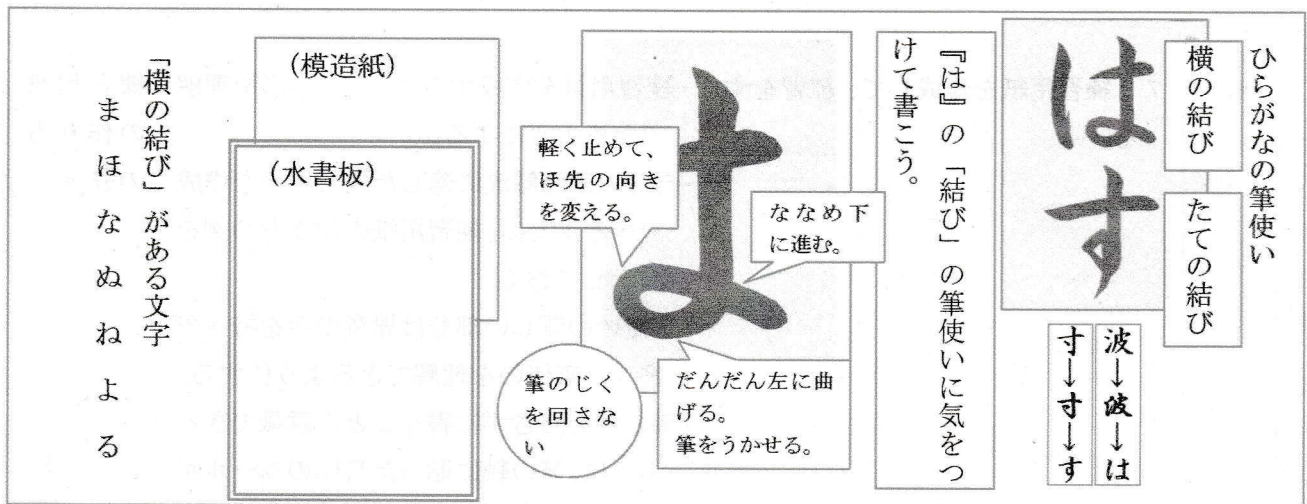 ひらがなの筆使い
横の結び
たての結び
は
す
波→波→は
寸→寸→す
『は』の「結び」の筆使いに気をつ
けて書こう。
軽く止めて、
ほ先の向き
を変える。
ななめ下
に進む。
だんだん左に曲
げる。
筆をうかせる。
筆のじく
を回さな
い
(模造紙)
(水書板)
「横の結び」がある文字
まほなぬねよる